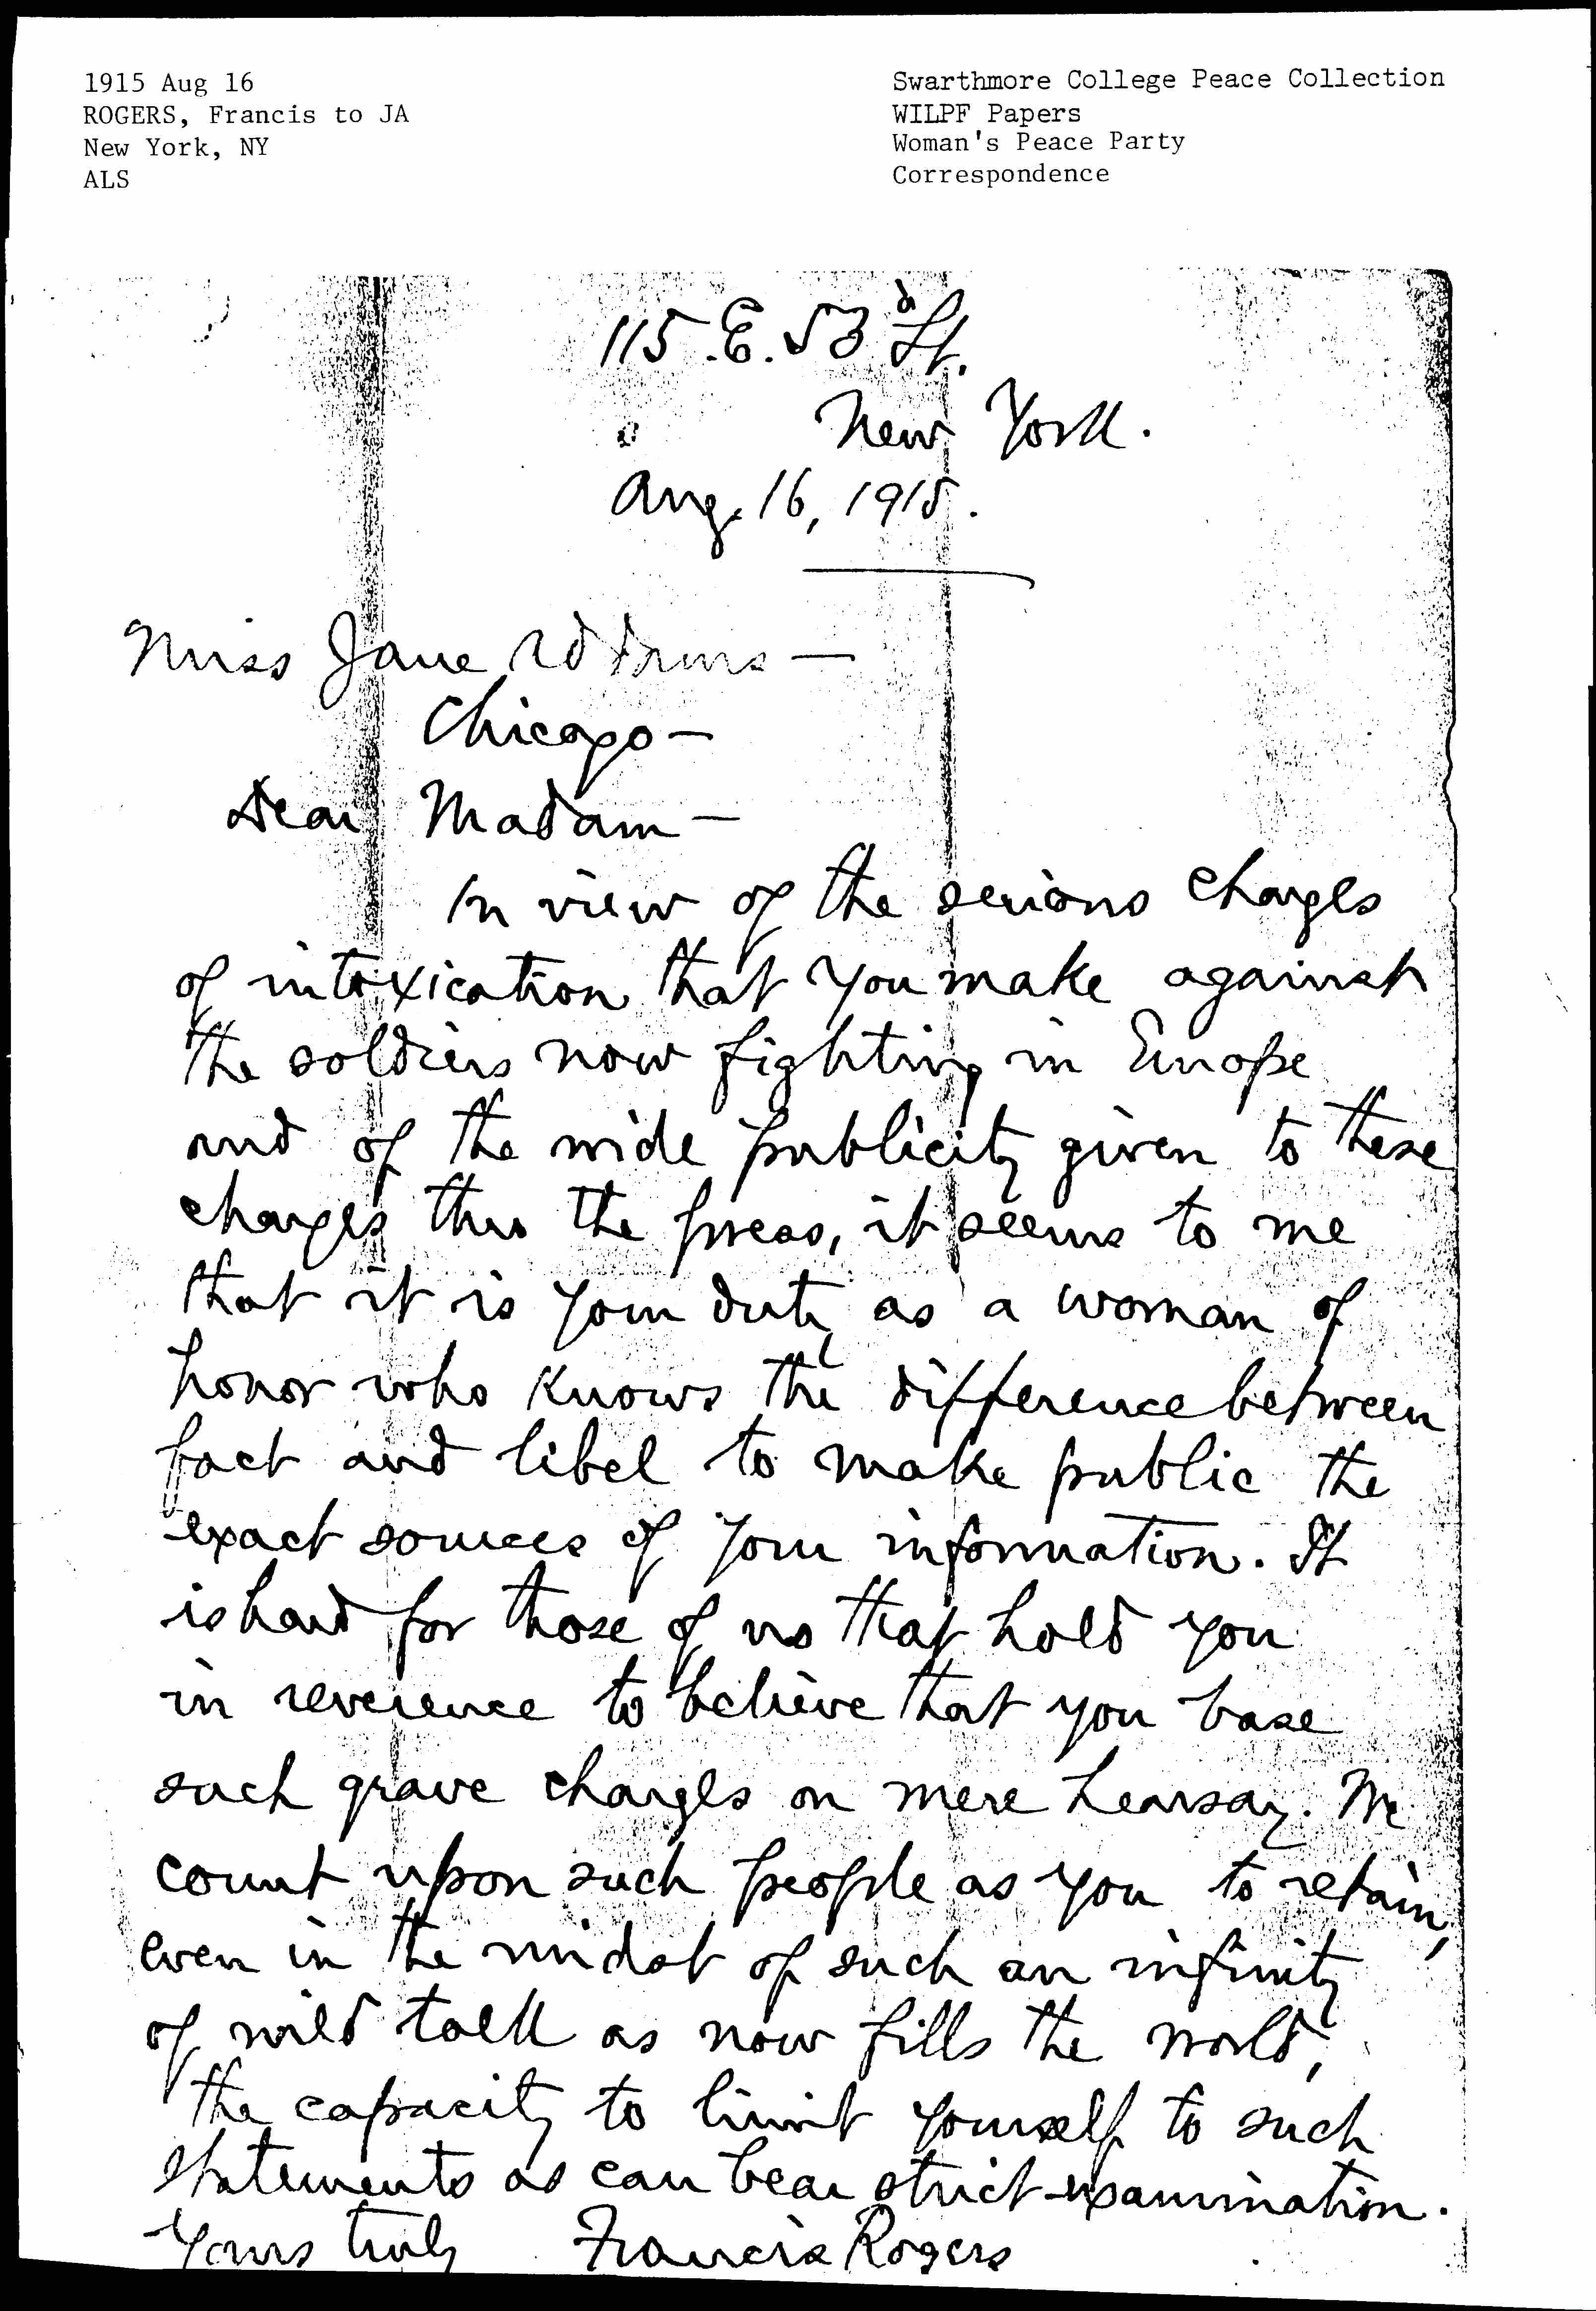 1915 Aug 16
ROGERS, Francis to JA
New York, NY
ALS
Swarthmore College Peace Collection
WILPF Papers
Woman's Peace Party
Correspondence
115.E.53d St.
New York.
Aug. 16, 1915.
Miss Jane Addams —
Chicago —
Dear Madam —
In view of the serious charges
of intoxication that you make against
the soldiers now fighting in Europe
and of the wide publicity given to these
charges thru the press, it seems to me
that it is your duty as a woman of
honor who knows the difference between
fact and libel to make public the
exact sources of your information. It
is hard for those of us that hold you
in reverence to believe that you base
such grave charges on mere hearsay. We
count upon such people as you to retain,
even in the midst of such an infinity
of wild talk as now fills the world,
the capacity to limit yourself to such
statements as can bear strict examination.
Yours truly Francis Rogers